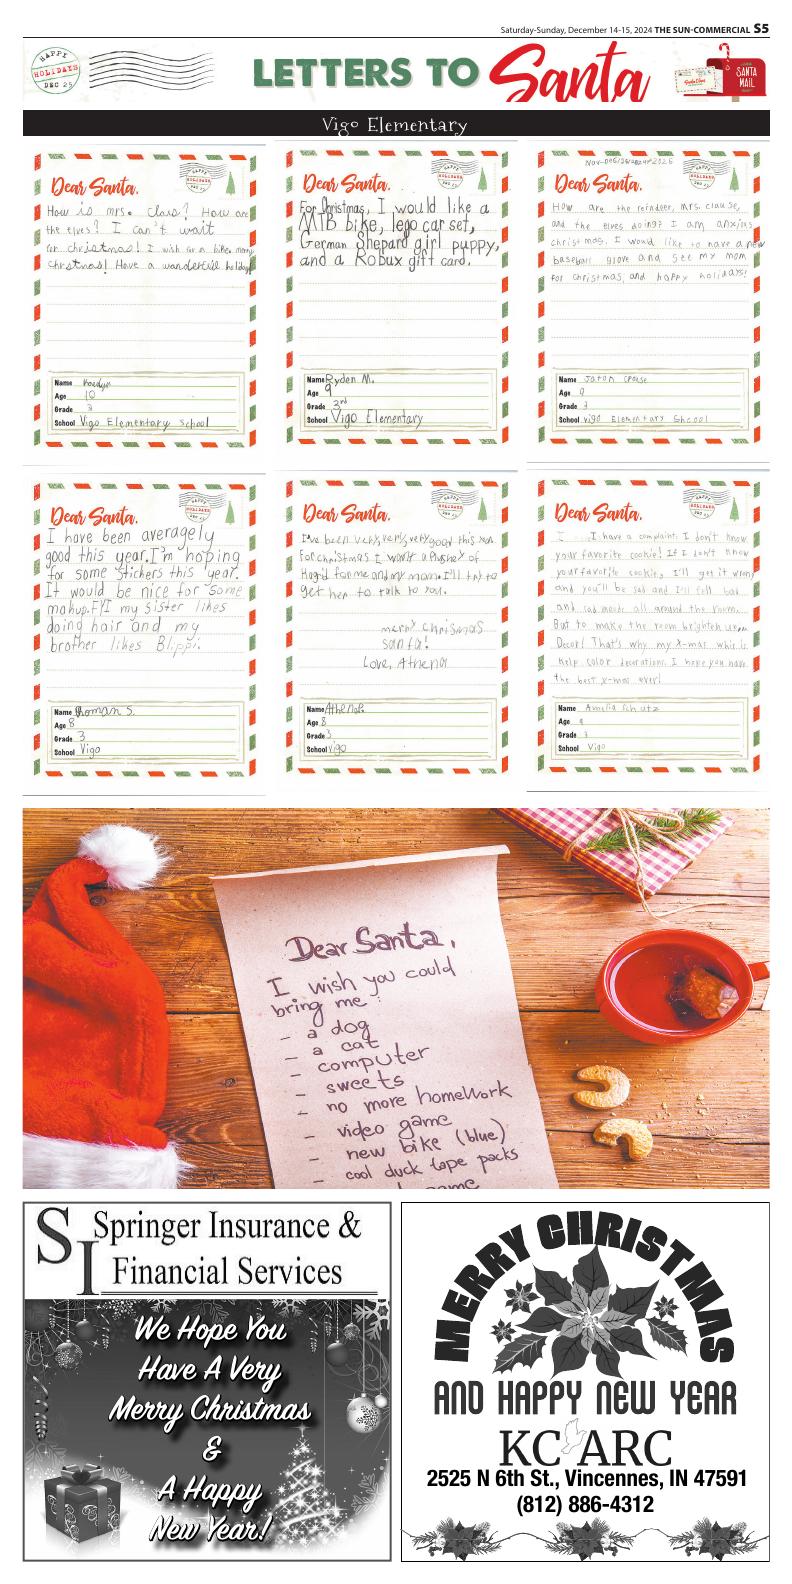 Saturday-Sunday, December 14-15, 2024 THE SUN-COMMERCIAL S5
HAPPY
HOLIDAYS
DEC 25
LETTERS TO Santa
SANTA
MAIL
Vigo Elementary
HAPPY
HOLIDAYS
DEC 25
Dear Santa,
How is mrs. class? How are
the elves? I can't wait
for christmas! I wish for a bike, merry
christmas! Have a wanderful holiday
Name
Age 10
Grade 3
School Vigo Elementary school
HAPPY
HOLIDAYS
DEC 25
Dear Santa,
For Christmas, I would like a
MTB bike, lego car set,
German Shepard girl puppy,
and a Robux gift card.
Name Ryden M.
Age 9
Grade 3rd
School Vigo Elementary
HAPPY
HOLIDAYS
DEC 25
Dear Santa,
How are the reindeer, mrs. clause,
and the elves doing? I am anxious
christmas. I would like to have a new
baseball glove and see my mom
for christmas, and happy holidays!
Name
Age 9
Grade 3
School vigo Elementary School
HAPPY
HOLIDAYS
DEC 25
Dear Santa,
I have been averagely
good this year. I'm hoping
for some stickers this year.
It would be nice for some
makup. FYI my sister likes
doing hair and my
brother likes Blippi.
Name Roman S.
Age 8
Grade 3
School Vigo
HAPPY
HOLIDAYS
DEC 25
Dear Santa,
I've been very, very, very good this year.
For christmas I want a plushey of
for me and my mom. I'll try to
get her to talk to you.
merry christmas
santa!
Love, Athena
Name Athena P.
Age 8
Grade 3
School Vigo
HAPPY
HOLIDAYS
DEC 25
Dear Santa,
I have a complaint. I don't know
your favorite cookie! If I don't know
your favorite cookie, I'll get it wrong
and you'll be sad and I'll fell bad
and sad moods all around the room.
But to make the room brighten up,
Decor! That's why my X-mas whis is
help color decorations. I hope you have
the best x-mas ever!
Name Amelia Schutz
Age
Grade 3
School Vigo
Dear Santa,
I wish you could
bring me:
- a dog
- a cat
- computer
- sweets
- no more homework
- video game
- new bike (blue)
- cool duck tape packs
game
SI Springer Insurance &
Financial Services
We Hope You
Have A Very
Merry Christmas
&
A Happy
New Year!
MERRY CHRISTMAS
AND HAPPY NEW YEAR
KC ARC
2525 N 6th St., Vincennes, IN 47591
(812) 886-4312